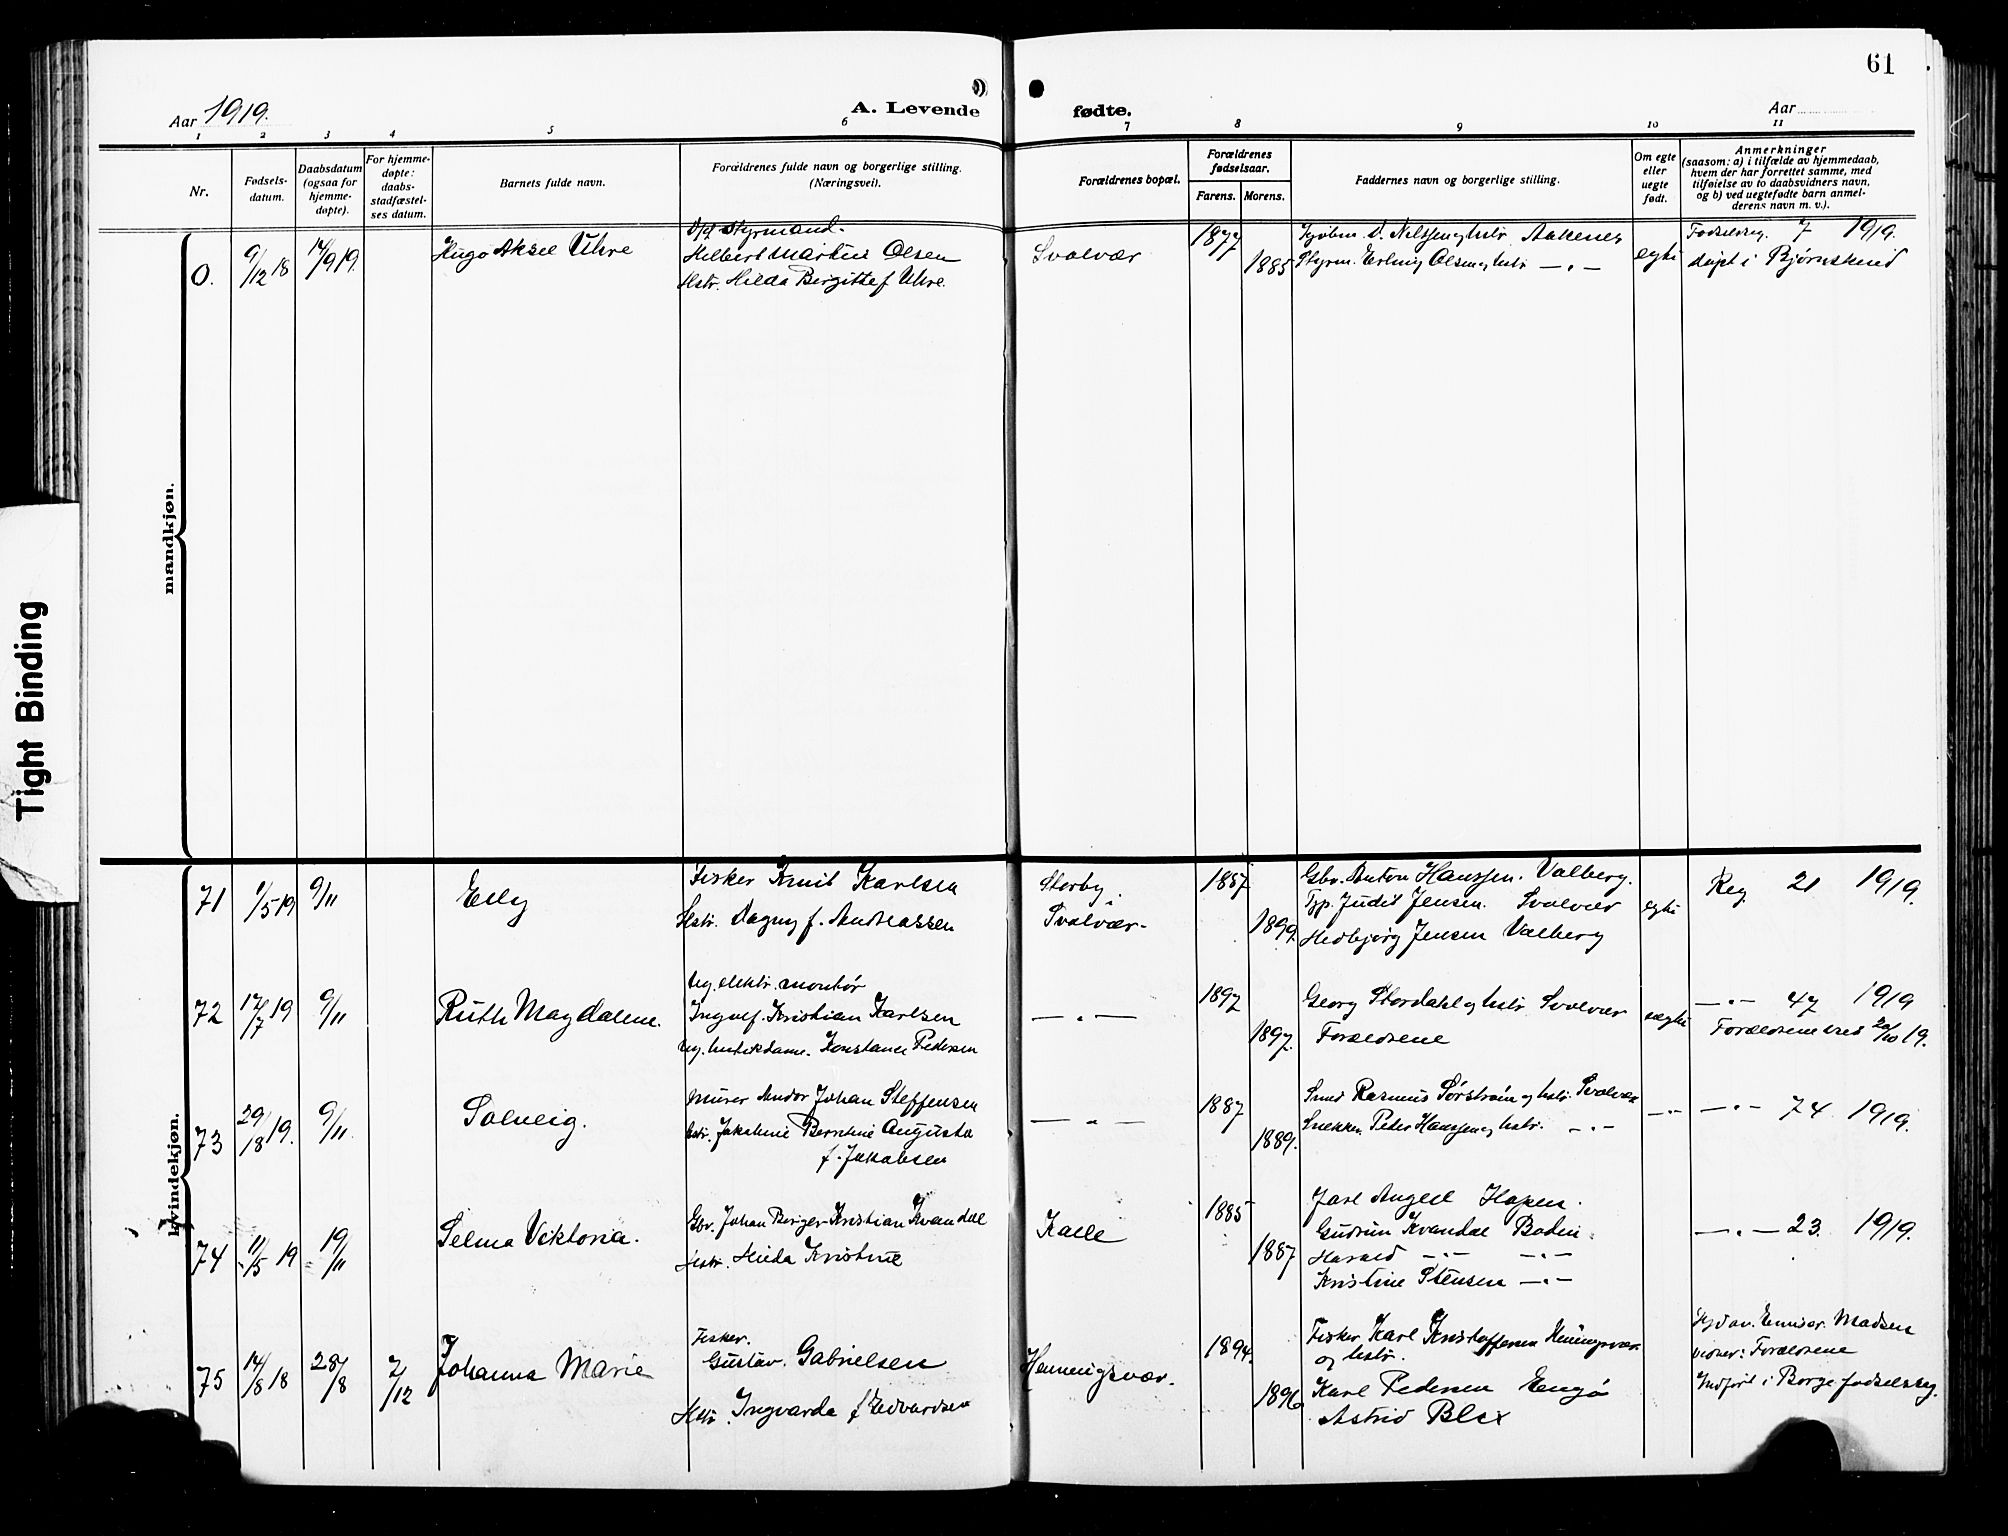 61
Aar 1919.
A. Levende
fødte.
Aar
1 2 3 4 5 6 7 8 9 10 11
Nr.
Fødsels-
datum.
Daabsdatum
(ogsaa for
hjemme-
døpte).
For hjemme-
døpte:
daabs-
stadfæstel-
ses datum.
Barnets fulde navn.
Forældrenes fulde navn og borgerlige stilling.
(Næringsvei).
Forældrenes bopæl.
Forældrenes
fødselsaar.
Farens. Morens.
Faddernes navn og borgerlige stilling.
Om egte
eller
uegte
født.
Anmerkninger
(saasom: a) i tilfælde av hjemmedaab,
hvem der har forrettet samme, med
tilføielse av to daabsvidners navn,
og b) ved uegtefødte barn anmel-
derens navn m. v.).
mandkjøn.
0.
9/12 18
14/9 19.
Hugo Aksel Uhre
Styrmand.
Helbert Martin Olsen
Hstr. Hilda Birgitte f Uhre.
Svolvær
1877
1885
Kjøbm. Nilssen og hstr Aakenes
Styrm. Erling Olsen og hstr — " —
egte
Fødselsreg. 7 1919.
døpt i Bjørnskind
kvindekjøn.
71
1/5 19
9/11
Elly
Fisker Knut Karlsen
Hstr. Dagny f. Andreassen
Storby i
Svolvær.
1857
1899.
Gbr. Anton Hanssen. Valberg.
Tjp. Judit Jensen. Svolvær
Hedbjørg Jensen Valberg
egte
Reg. 21 1919.
72
17/7 19
9/11
Ruth Magdalene.
Ug. elektr. montør
Ingolf Kristian Karlsen
Ug. butikdame. Konstance Pedersen
— " —
1897
1897.
Georg Stordahl og hstr Svolvær
Forældrene
uegte
— " — 47 1919
Forældrene viet 20/10 19.
73
29/8 19.
9/11
Solveig.
Murer Andor Johan Steffensen
hstr. Jakobine Berntine Augusta
f. Jakobsen
— " —
1887
1889.
Smed Rasmus Sørstrøm og hstr. Svolvær
Snekker Peter Hanssen og hstr. — " —
— " —
— " — 74 1919.
74
11/5 19
19/11
Selma Viktoria.
Gbr. Johan Berger Kristian Kvandal
Hstr. Hilda Kristine
Kalle
1885
1887
Jarl Angell Hopen.
Gudrun Kvandal Bodin.
Harald — " — — " —
Kristine Stensen — " —
— " — 23. 1919.
75
14/8 18
28/8
7/12
Johanna Marie
Fisker.
Gustav. Gabrielsen
Hstr. Ingvarda f Edvardsen
Henningsvær.
1894.
1896
Fisker Karl Kristoffersen Henningsvær
og hstr.
Karl Pedersen Engø
Astrid Blix
Hjd av. Emissær. Madsen
vidner: Forældrene
Indført i Borge fødselsreg.
Tight Binding